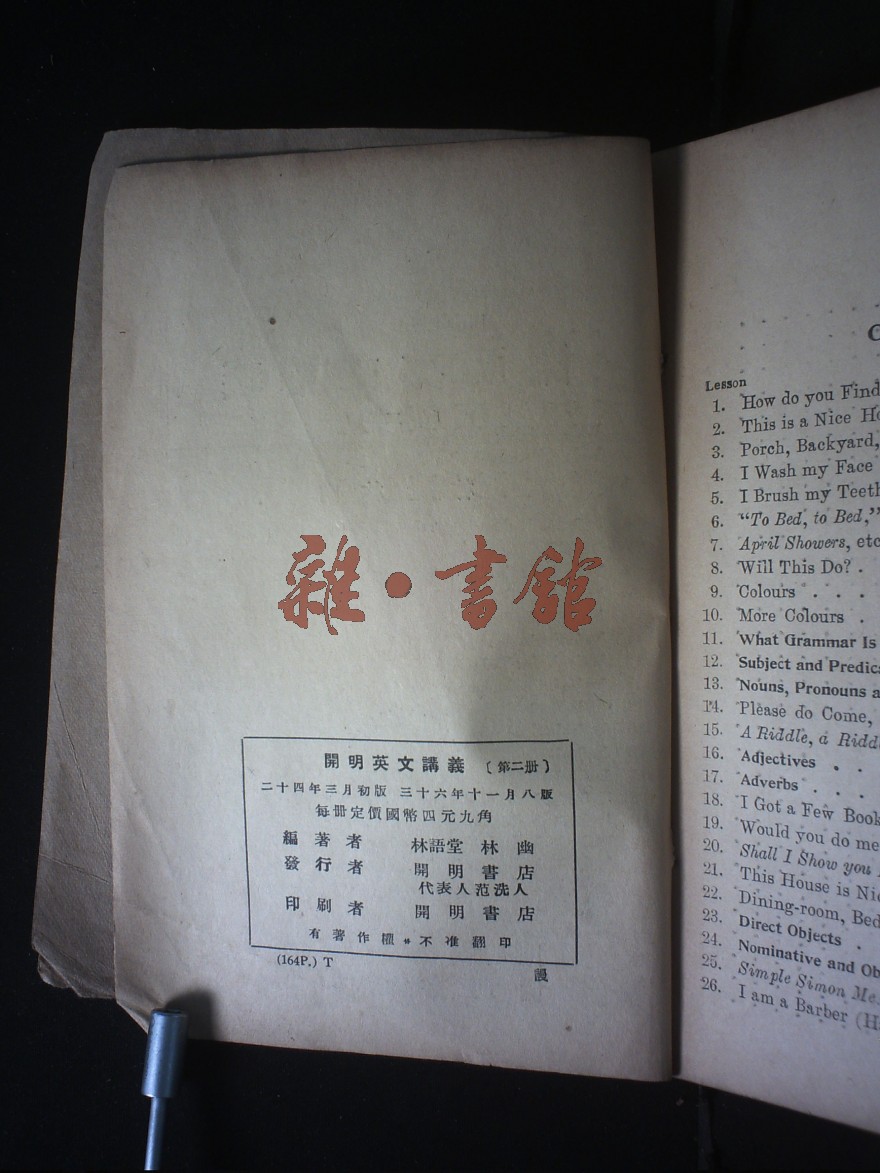 雜•書館
開明英文講義 〔第二册〕
二十四年三月初版 三十六年十一月八版
每册定價國幣四元九角
編著者 林語堂 林幽
發行者 開明書店
代表人范洗人
印刷者 開明書店
有著作權*不准翻印
(164P.) T
Lesson
1. How do you Find
2. This is a Nice
3. Porch, Backyard,
4. I Wash my Face
5. I Brush my Teeth
6. "To Bed, to Bed,"
7. April Showers, etc
8. Will This Do? .
9. Colours . . .
10. More Colours .
11. What Grammar Is
12. Subject and
13. Nouns, Pronouns
14. Please do Come,
15. A Riddle, a
16. Adjectives . .
17. Adverbs . . .
18. I Got a Few
19. Would you do me
20. Shall I Show you
21. This House is
22. Dining-room,
23. Direct Objects .
24. Nominative and
25. Simple Simon
26. I am a Barber